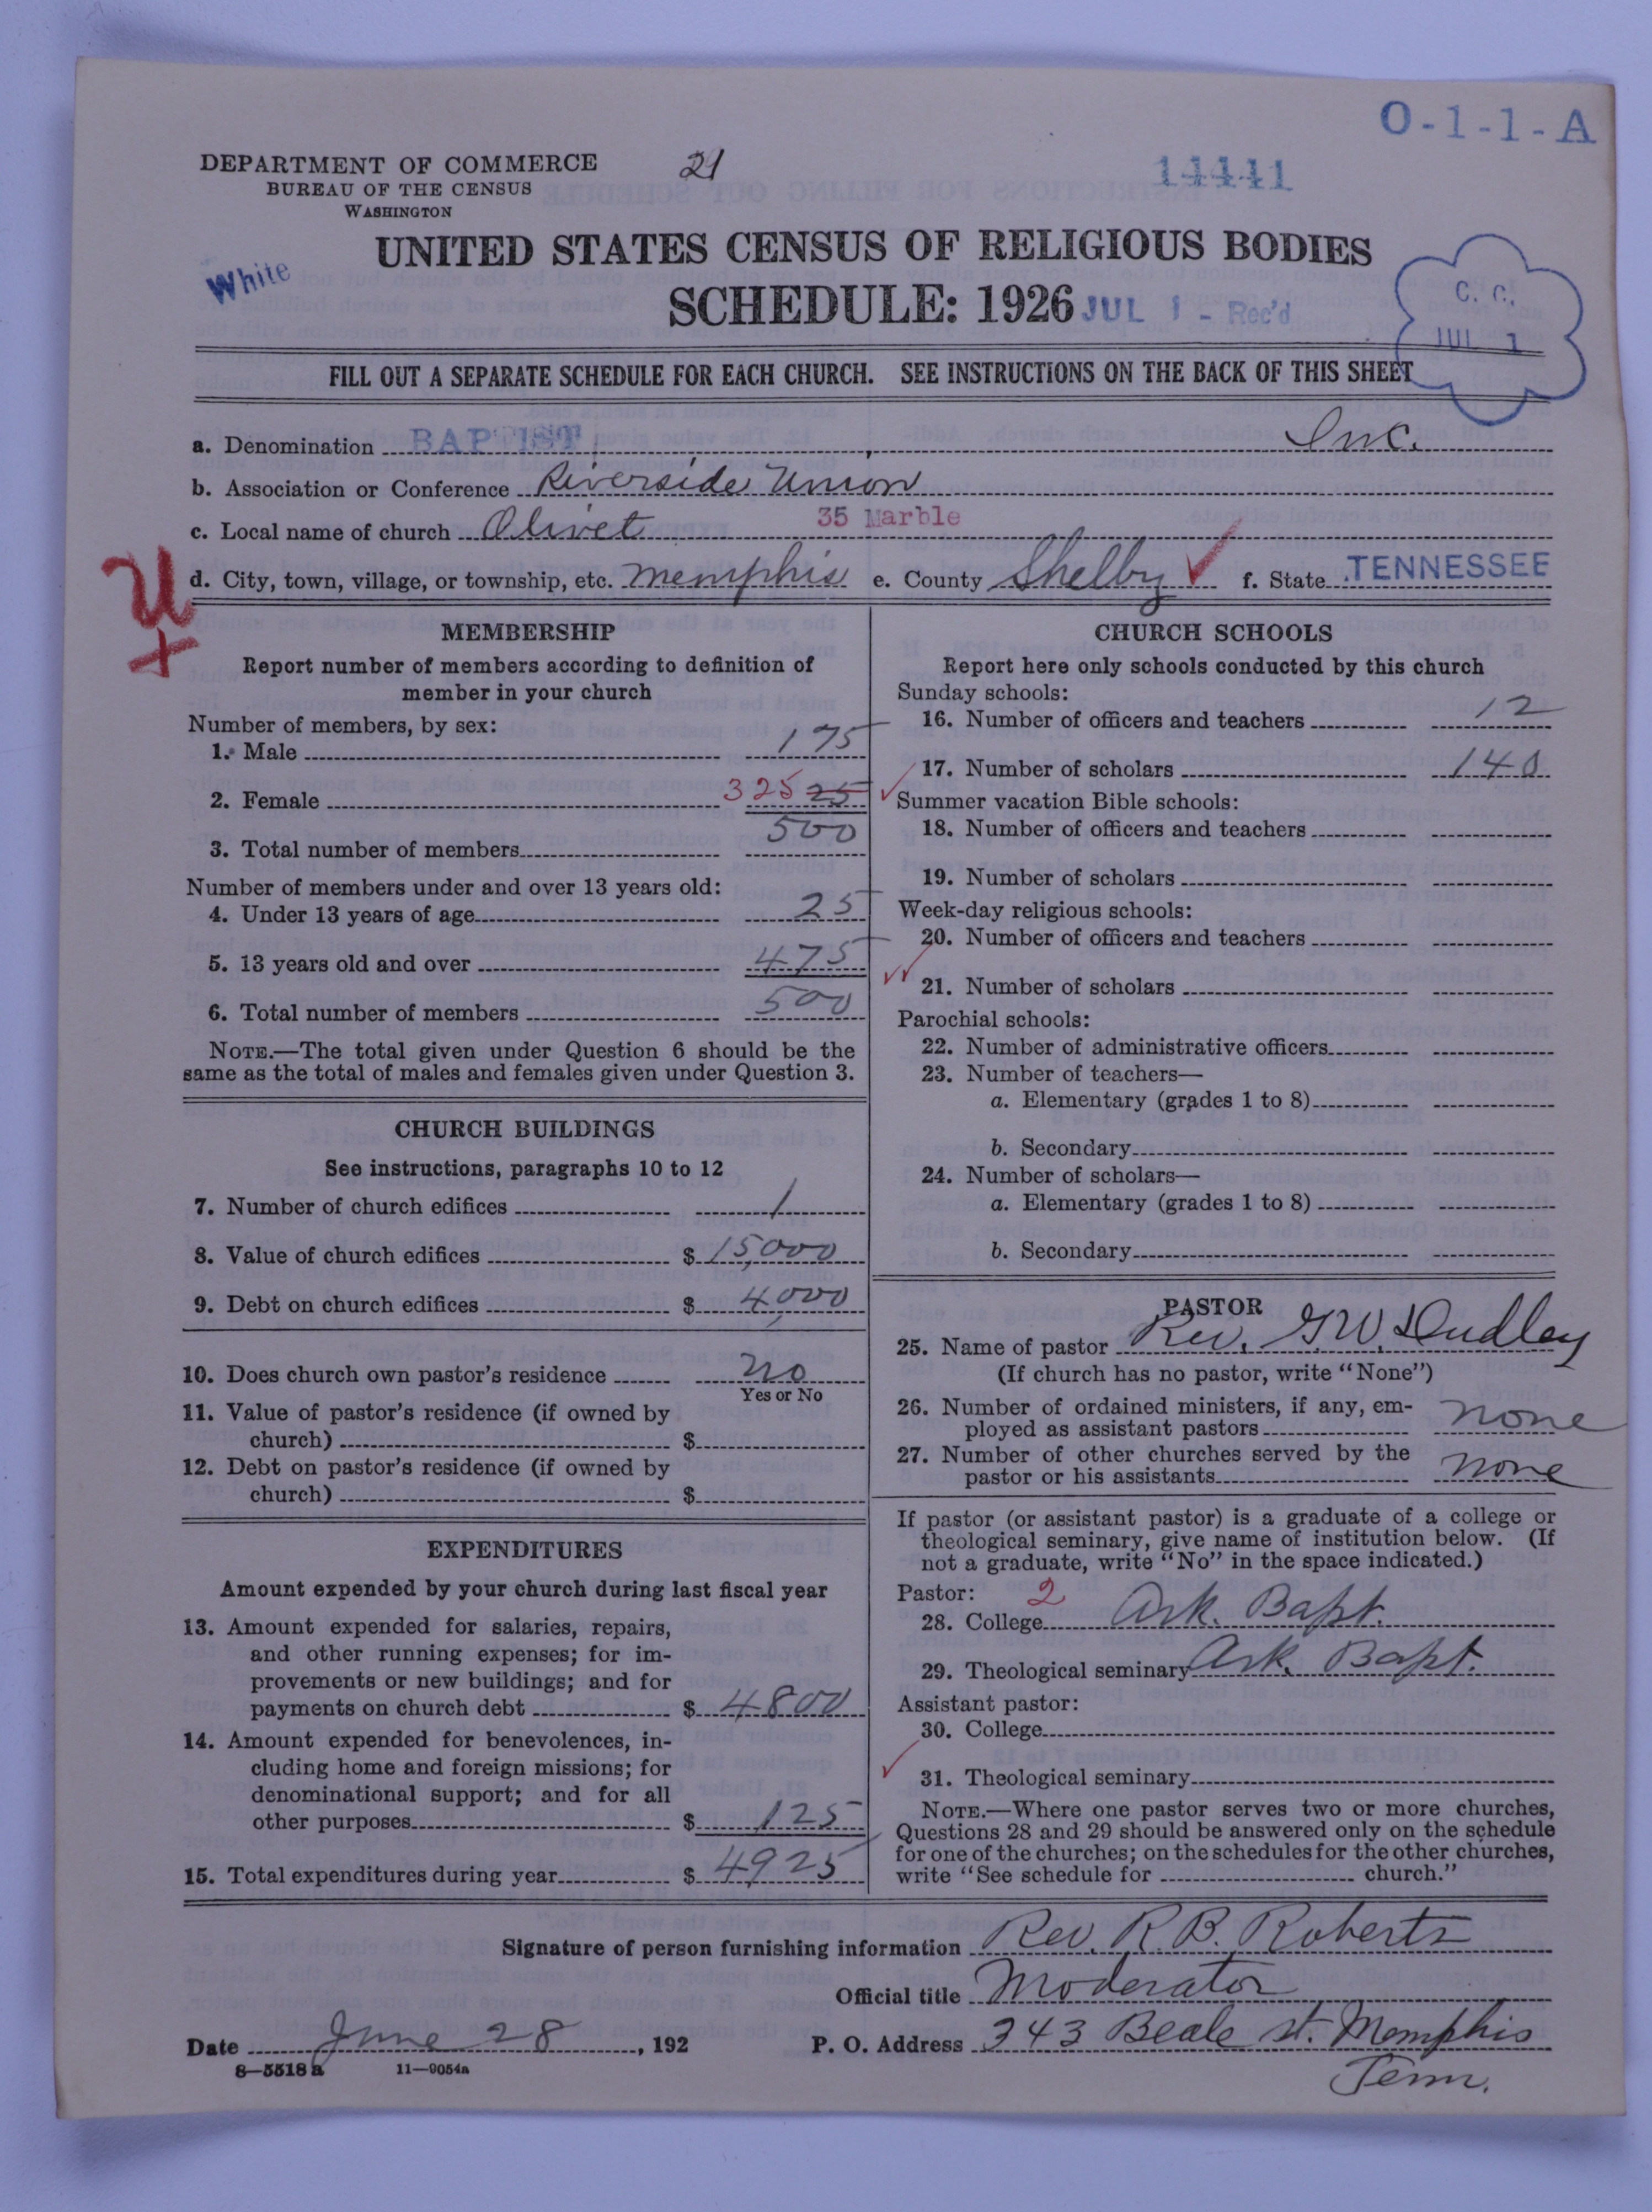 O-1-1-A
DEPARTMENT OF COMMERCE
BUREAU OF THE CENSUS
WASHINGTON
14441
UNITED STATES CENSUS OF RELIGIOUS BODIES
White
SCHEDULE: 1926 JUL 1 - Rec'd
C. C.
JUL 1
FILL OUT A SEPARATE SCHEDULE FOR EACH CHURCH. SEE INSTRUCTIONS ON THE BACK OF THIS SHEET
a. Denomination BAPTIST Inc.
b. Association or Conference Riverside Union
c. Local name of church Olivet 35 Marble
d. City, town, village, or township, etc. Memphis e. County Shelby f. State TENNESSEE
U
MEMBERSHIP
Report number of members according to definition of
member in your church
Number of members, by sex:
1. Male 175
2. Female 325 25
3. Total number of members 500
Number of members under and over 13 years old:
4. Under 13 years of age 25
5. 13 years old and over 475
6. Total number of members 500
NOTE.—The total given under Question 6 should be the
same as the total of males and females given under Question 3.
CHURCH BUILDINGS
See instructions, paragraphs 10 to 12
7. Number of church edifices 1
8. Value of church edifices $ 15,000
9. Debt on church edifices $ 4,000
10. Does church own pastor's residence no
Yes or No
11. Value of pastor's residence (if owned by
church) $
12. Debt on pastor's residence (if owned by
church) $
EXPENDITURES
Amount expended by your church during last fiscal year
13. Amount expended for salaries, repairs,
and other running expenses; for im-
provements or new buildings; and for
payments on church debt $ 4800
14. Amount expended for benevolences, in-
cluding home and foreign missions; for
denominational support; and for all
other purposes $ 125
15. Total expenditures during year $ 4925
CHURCH SCHOOLS
Report here only schools conducted by this church
Sunday schools:
16. Number of officers and teachers 12
17. Number of scholars 140
Summer vacation Bible schools:
18. Number of officers and teachers
19. Number of scholars
Week-day religious schools:
20. Number of officers and teachers
21. Number of scholars
Parochial schools:
22. Number of administrative officers
23. Number of teachers—
a. Elementary (grades 1 to 8)
b. Secondary
24. Number of scholars—
a. Elementary (grades 1 to 8)
b. Secondary
PASTOR
25. Name of pastor Rev. G.W. Dudley
(If church has no pastor, write "None")
26. Number of ordained ministers, if any, em-
ployed as assistant pastors none
27. Number of other churches served by the
pastor or his assistants none
If pastor (or assistant pastor) is a graduate of a college or
theological seminary, give name of institution below. (If
not a graduate, write "No" in the space indicated.)
Pastor: 2
28. College Ark. Bapt.
29. Theological seminary Ark. Bapt.
Assistant pastor:
30. College
31. Theological seminary
NOTE.—Where one pastor serves two or more churches,
Questions 28 and 29 should be answered only on the schedule
for one of the churches; on the schedules for the other churches,
write "See schedule for church."
Signature of person furnishing information Rev. R. B. Roberts
Official title Moderator
Date June 28, 192 P. O. Address 343 Beale st. Memphis
Tenn.
8—5518 a 11—9054a